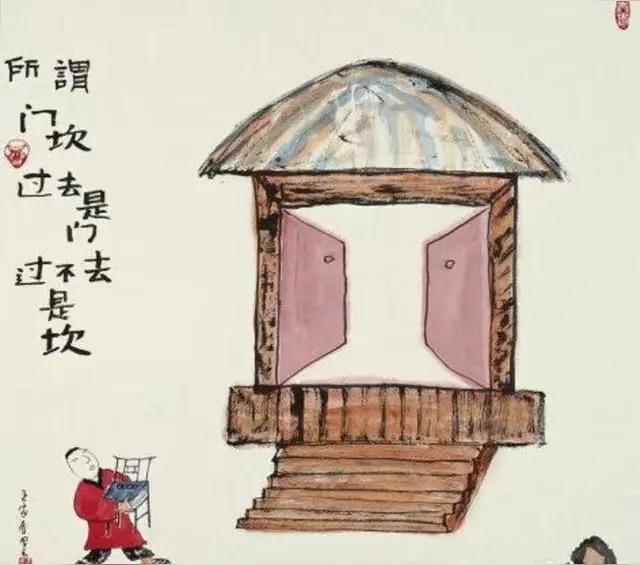 所謂
门坎
过去是门
过不去是坎
王家春